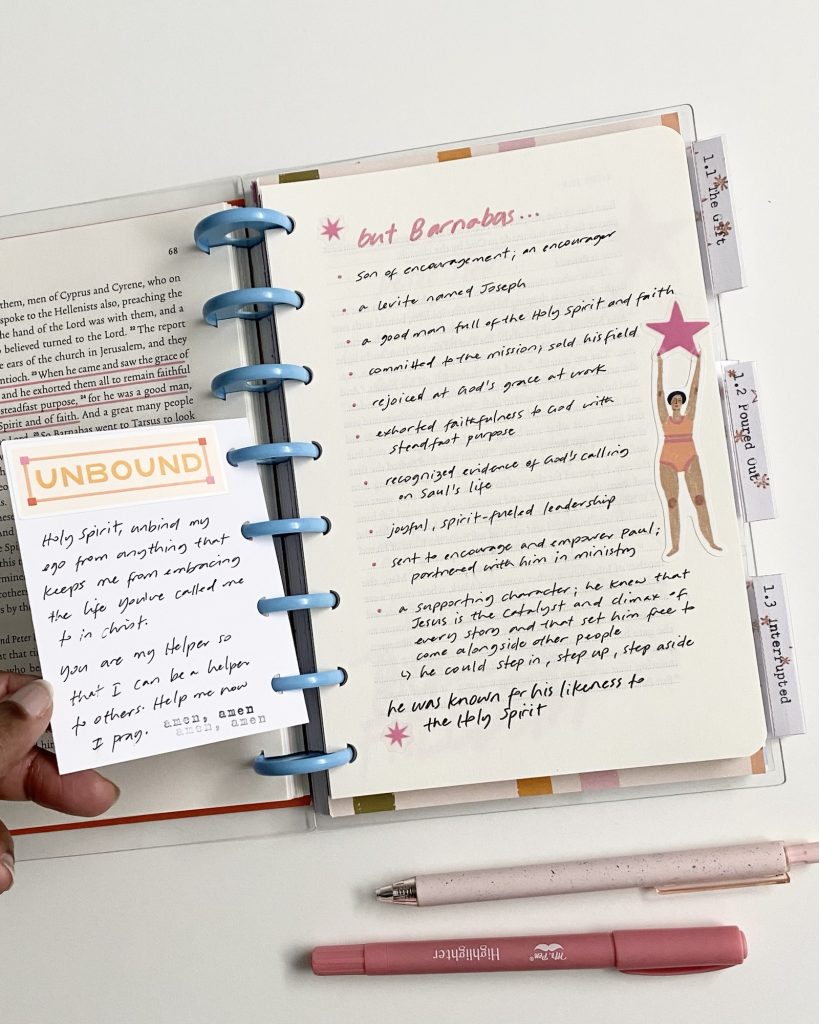 68
them, men of Cyprus and Cyrene, who on
spoke to the Hellenists also, preaching the
the hand of the Lord was with them, and a
believed turned to the Lord. 22 The report
e ears of the church in Jerusalem, and they
ntioch. 23 When he came and saw the grace of
and he exhorted them all to remain faithful
steadfast purpose, 24 for he was a good man,
Spirit and of faith. And a great many people
lord. 25 So Barnabas went to Tarsus to look
UNBOUND
Holy Spirit, unbind my
ego from anything that
keeps me from embracing
the life you've called me
to in Christ.
You are my Helper so
that I can be a helper
to others. Help me now
I pray. amen, amen
amen, amen
but Barnabas...
• son of encouragement; an encourager
• a Levite named Joseph
• a good man full of the Holy Spirit and faith
• committed to the mission; sold his field
• rejoiced at God's grace at work
• exhorted faithfulness to God with
steadfast purpose
• recognized evidence of God's calling
on Saul's life
• joyful, spirit-fueled leadership
• sent to encourage and empower Paul;
partnered with him in ministry
• a supporting character; he knew that
Jesus is the catalyst and climax of
every story and that set him free to
come alongside other people
↳ he could step in, step up, step aside
he was known for his likeness to
the Holy Spirit
1.1 The Gift
1.2 Poured Out
1.3 Interrupted
Mr. Pen®
Highlighter